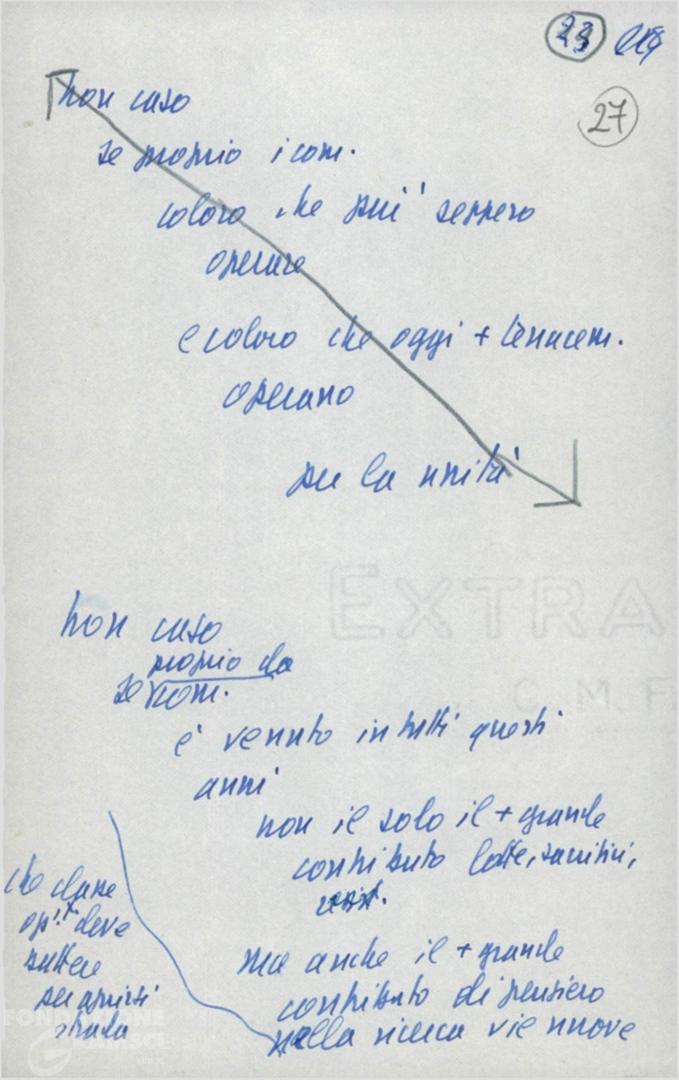 23
27
non caso
se proprio i com.
coloro che più seppero
operare
e coloro che oggi + tenacem.
operano
per la unità
EXTRA
C. M. F.
non caso
proprio da
se com.
è venuto in tutti questi
anni
non il solo il + grande
contributo lotte, sacrifici,
ma anche il + grande
contributo di pensiero
nella ricerca vie nuove
che classe
op. deve
battere
per aprirsi
strada
FONDAZIONE
GRAMSCI